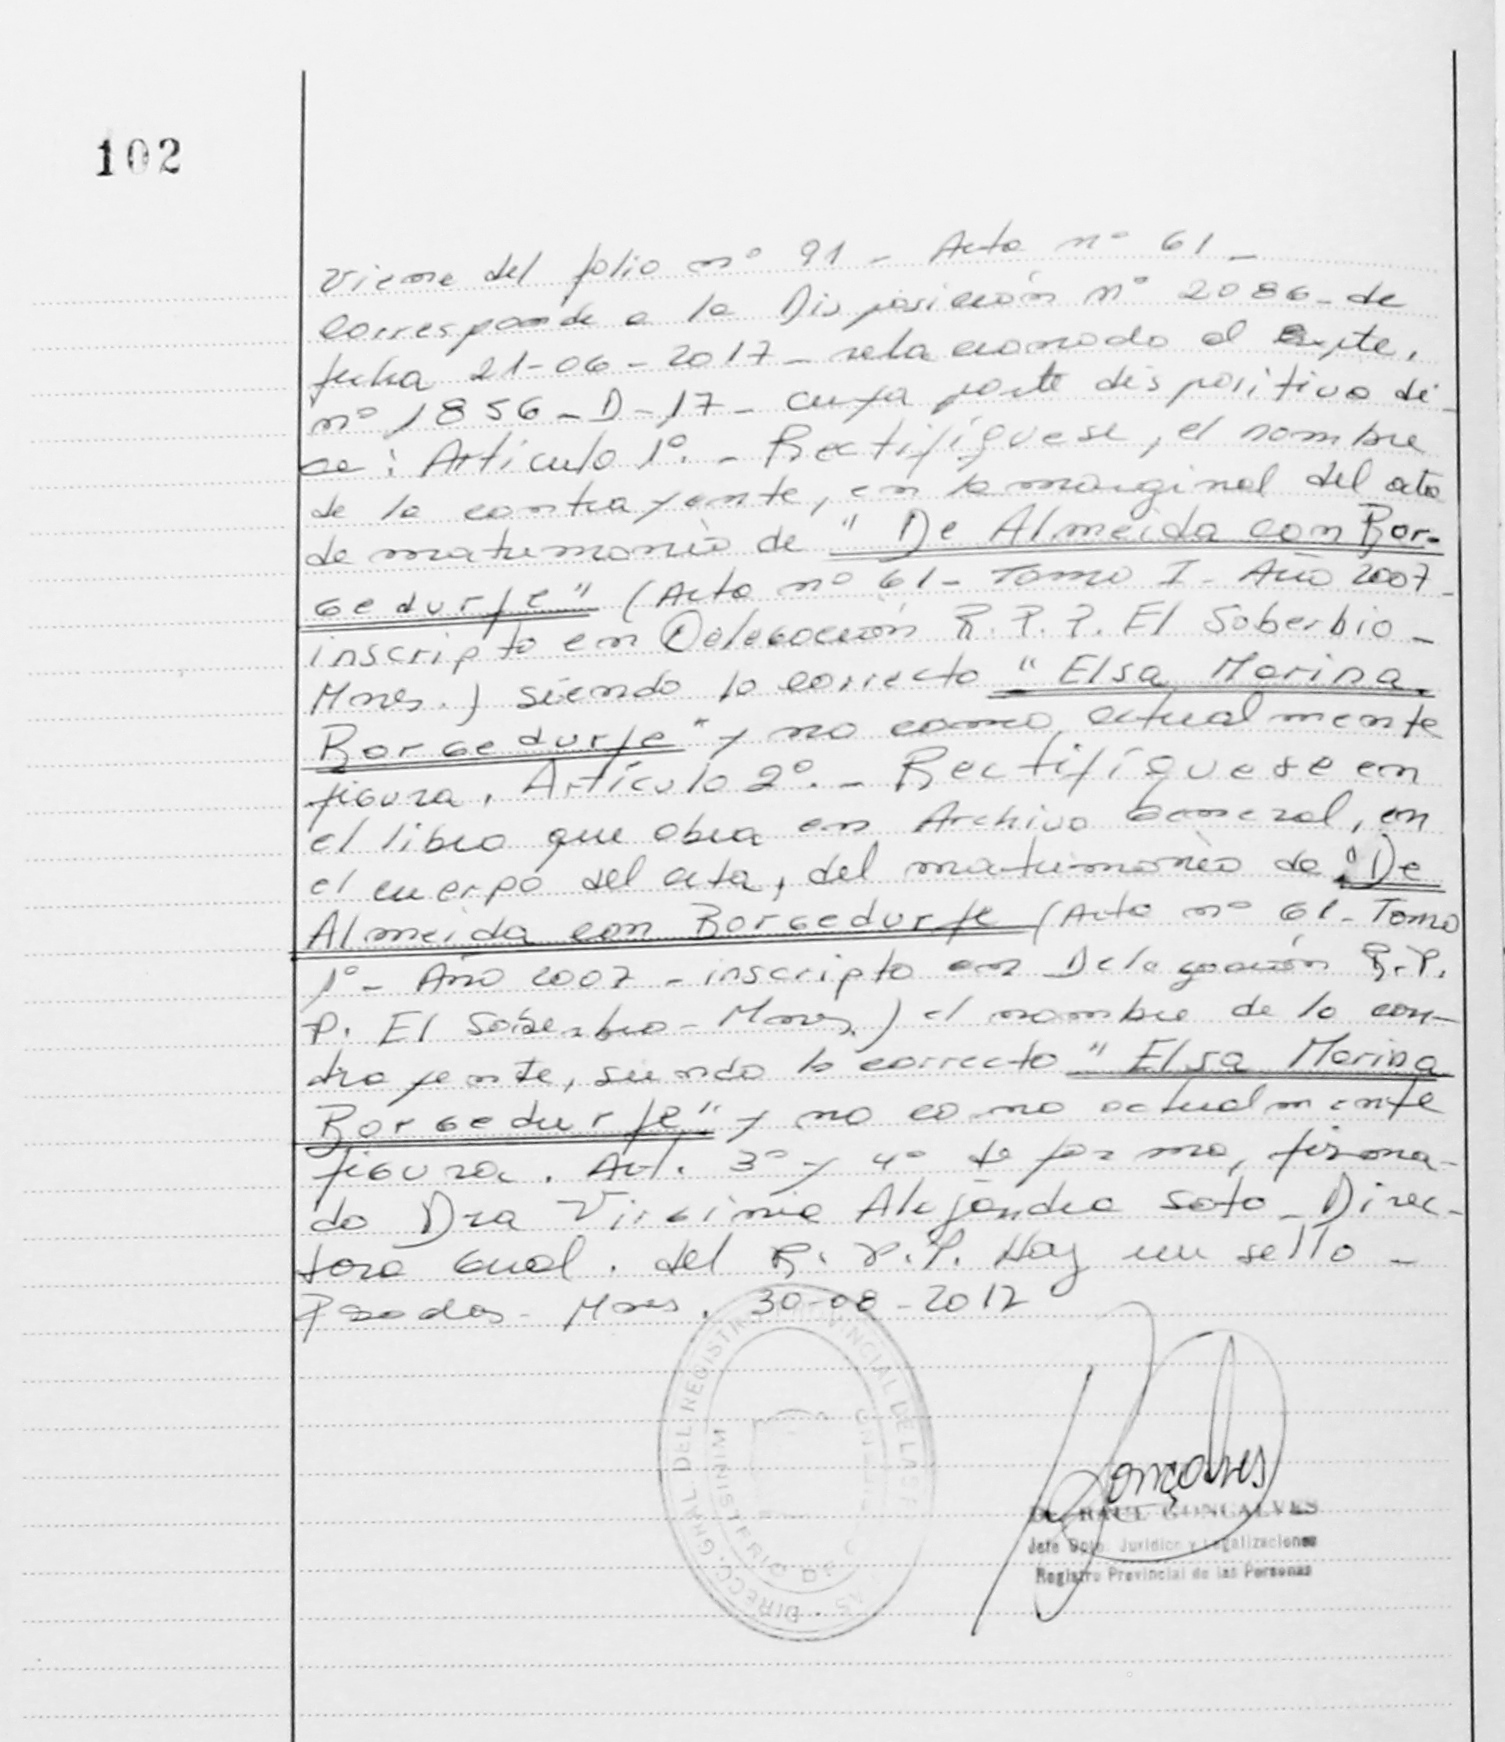 102
Viene del folio nº 91 - Acta nº 61 -
Corresponde a la Disposición nº 2086 - de
fecha 21-06-2017 - relacionado al Expte.
nº 1856-D-17 - cuya parte dispositiva di-
ce: Artículo 1º. - Rectifíquese, el nombre
de la contrayente, en la marginal del acta
de matrimonio de "De Almeida con Bor-
gedurfe" (Acta nº 61 - Tomo I - Año 2007 -
inscripto en Delegación R.P.P. El Soberbio -
Mnes.) siendo lo correcto "Elsa Marina
Borgedurfe" y no como actualmente
figura. Artículo 2º. - Rectifíquese en
el libro que obra en Archivo General, en
el cuerpo del acta, del matrimonio de "De
Almeida con Borgedurfe (Acta nº 61 - Tomo
1º - Año 2007 - inscripto en Delegación R.P.
P. El Soberbio - Mnes.) el nombre de la con-
trayente, siendo lo correcto "Elsa Marina
Borgedurfe" y no como actualmente
figura. Art. 3º y 4º de forma, firma-
do Dra Virginia Alejandra Soto - Direc-
tora Gral. del R.P.P. Hay un sello -
Psadas - Mnes. 30-08-2017
DIRECC. GRAL. DEL REGISTR VINCIAL DE LAS P
MINISTERIO DE
Gonçalves
Dr. RAUL GONCALVES
Jefe Dpto. Jurídico y Legalizaciones
Registro Provincial de las Personas